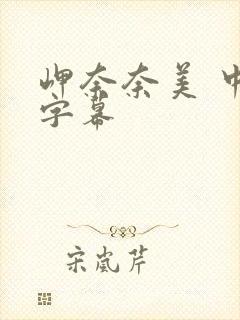 岬奈奈美 中
字幕
宋岚芹